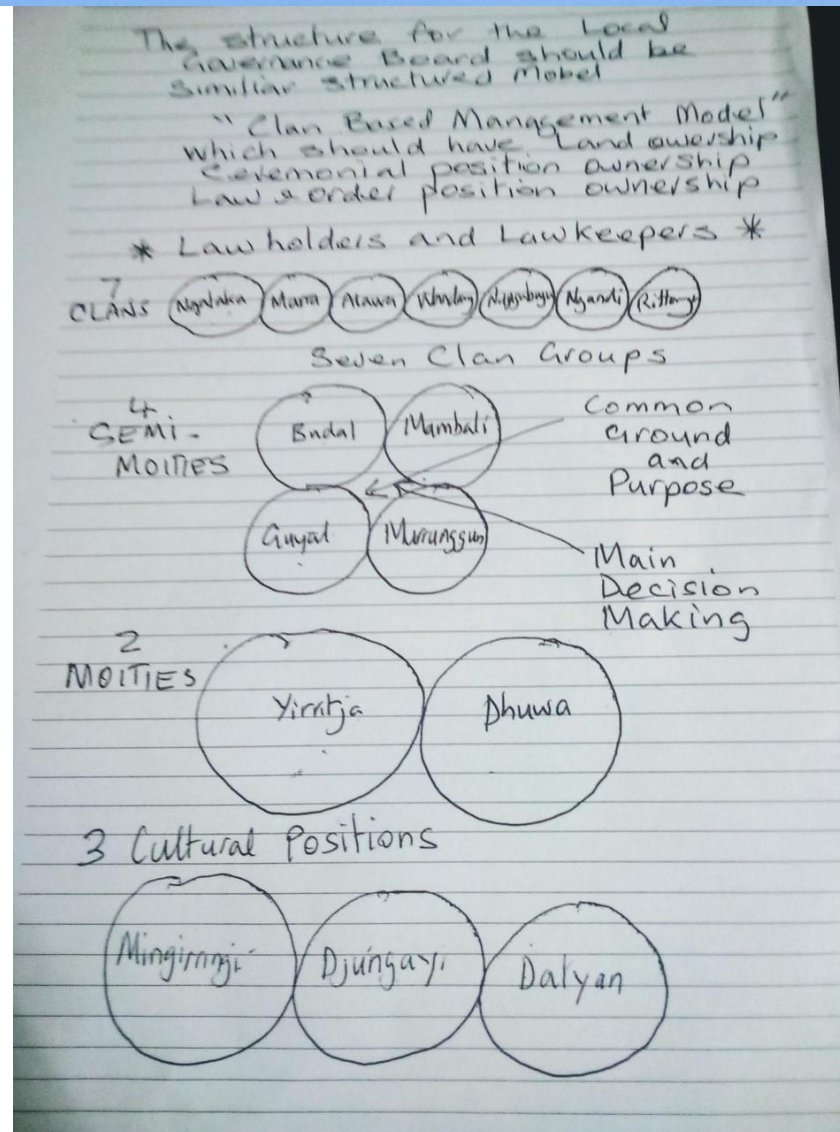 The structure for the Local
Governance Board should be
Similiar structured Mobel
"Clan Based Management Model"
which should have Land owership
Ceremonial position ownership
Law & order position ownership
* Lawholders and Lawkeepers *
7
CLANS Mara Alawa Ngandi
Seven Clan Groups
4
SEMI-
MOITIES
Budal Mambali
Guyal Murunggun
Common
Ground
and
Purpose
Main
Decision
Making
2
MOITIES
Yirritja Dhuwa
3 Cultural Positions
Djungayi Dalyan